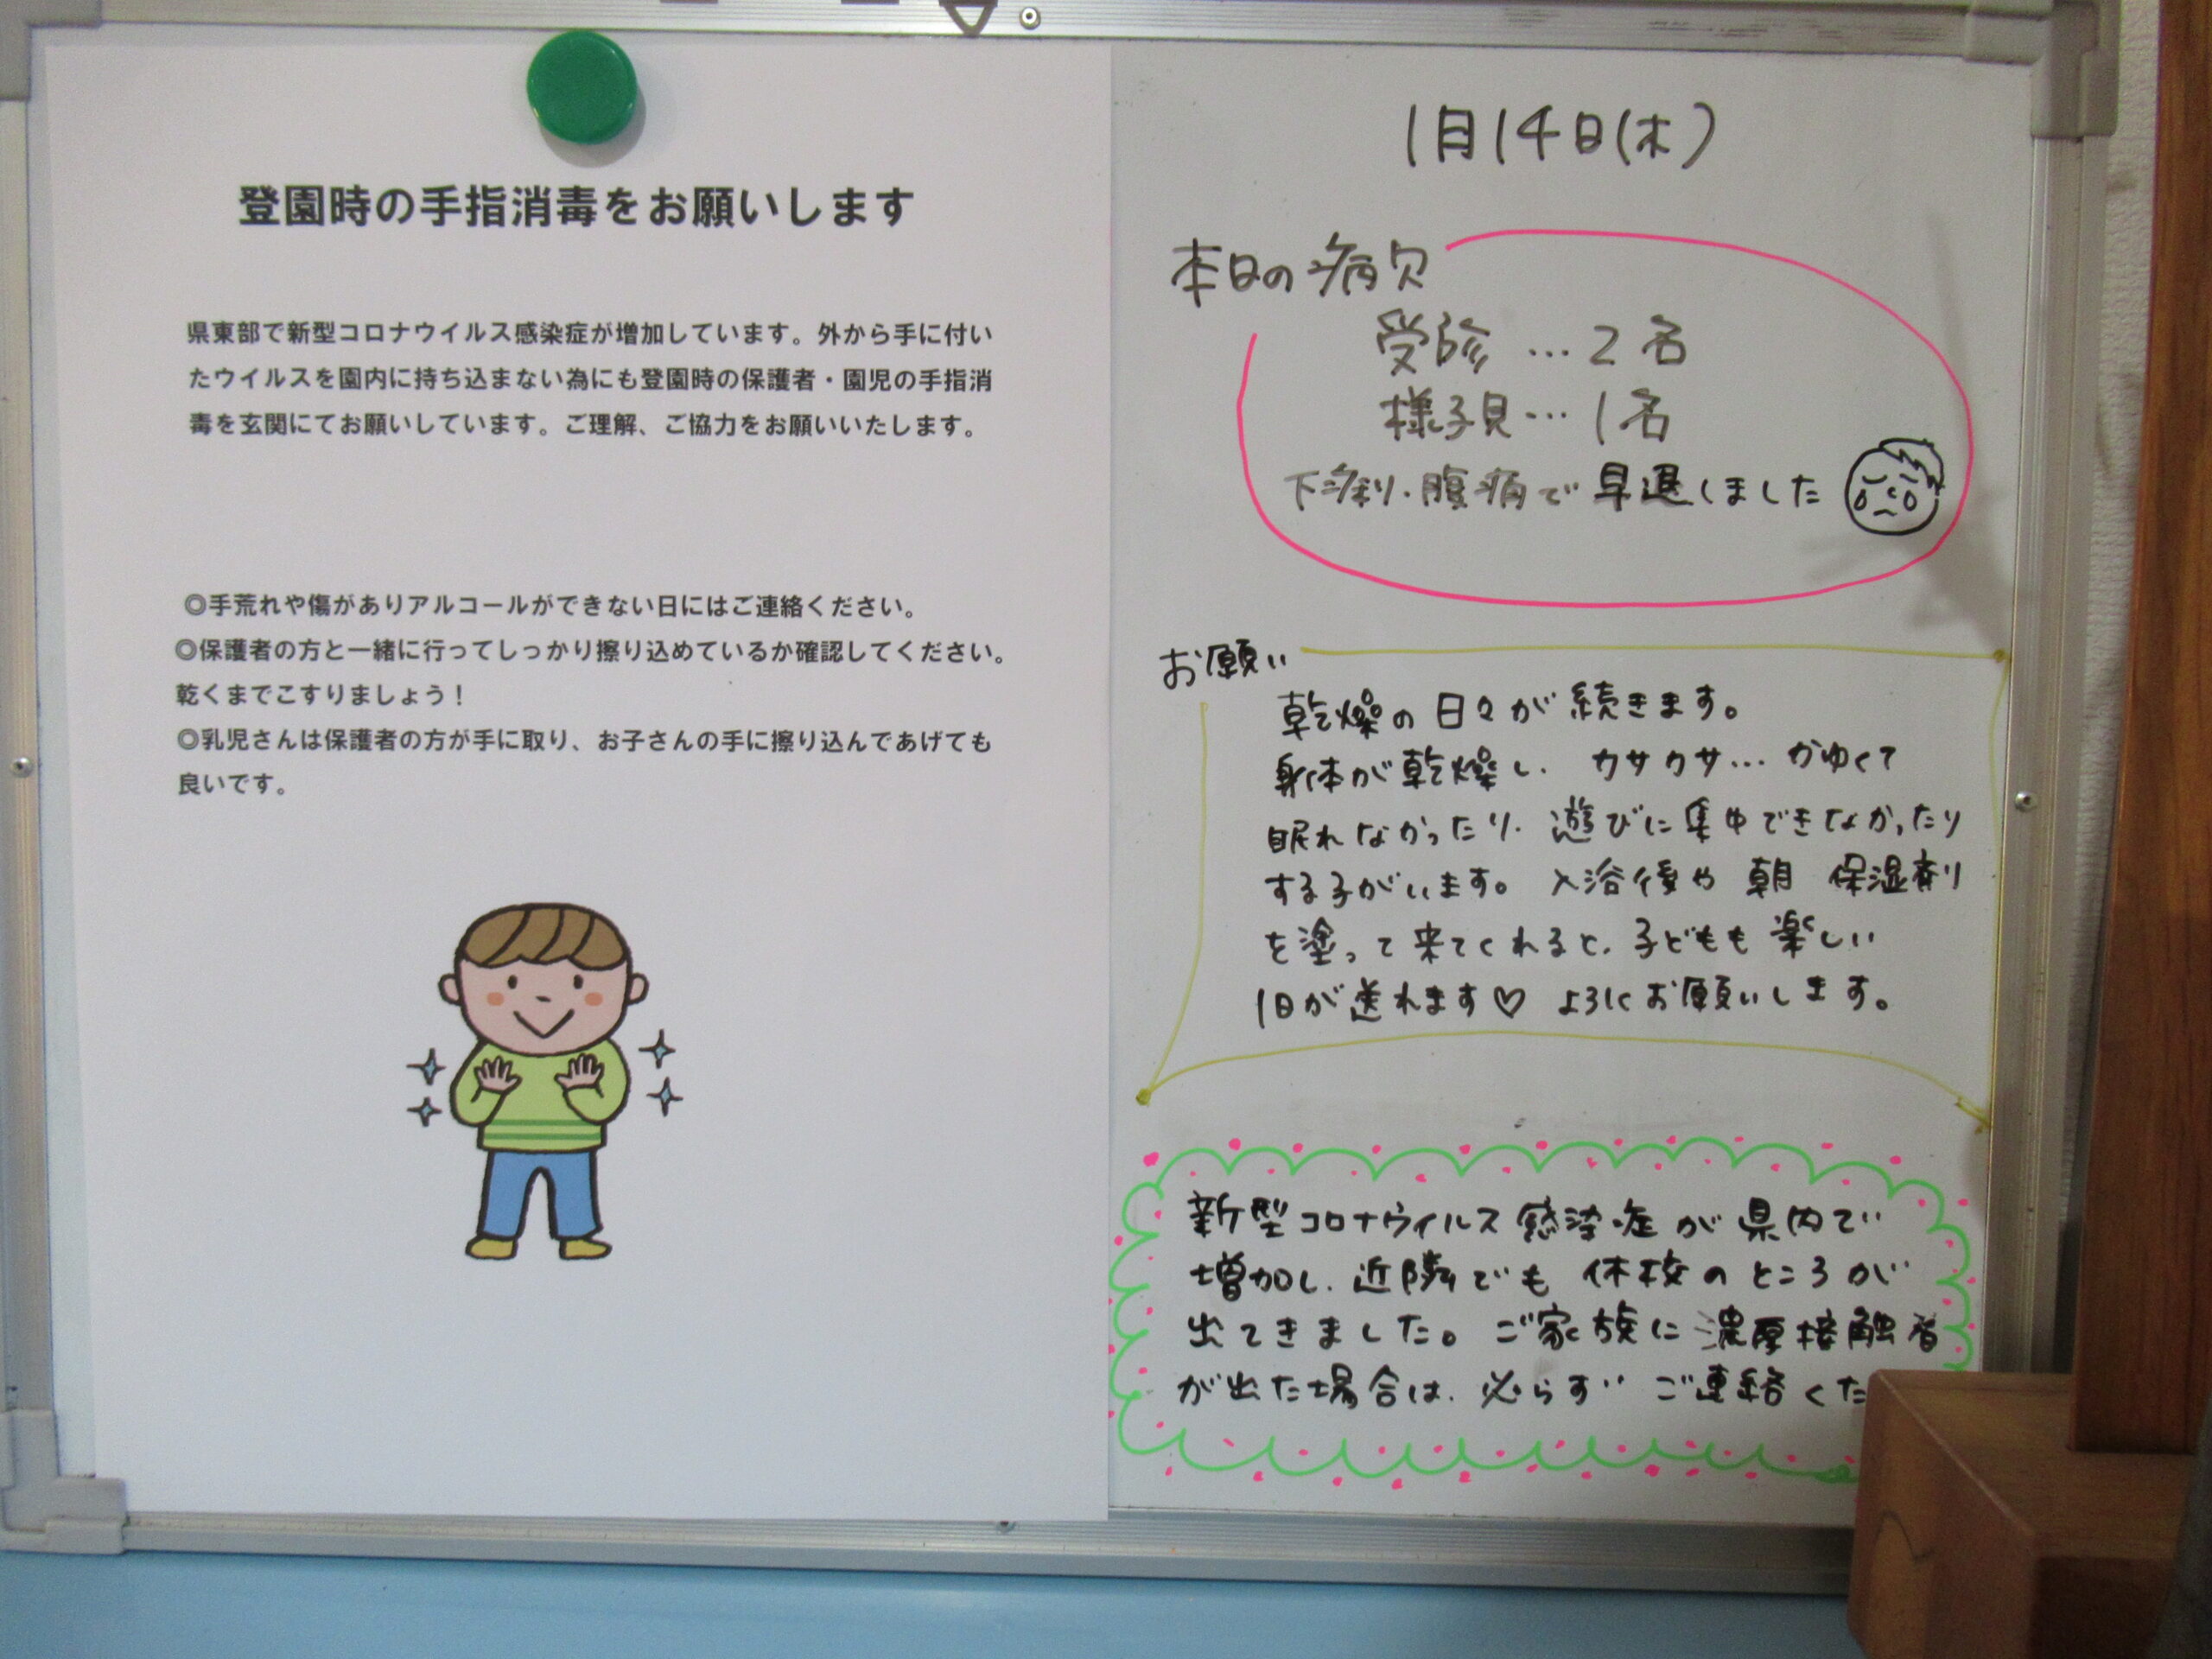 登園時の手指消毒をお願いします
県東部で新型コロナウイルス感染症が増加しています。外から手に付い
たウイルスを園内に持ち込まない為にも登園時の保護者・園児の手指消
毒を玄関にてお願いしています。ご理解、ご協力をお願いいたします。
◎手荒れや傷がありアルコールができない日にはご連絡ください。
◎保護者の方と一緒に行ってしっかり擦り込めているか確認してください。
乾くまでこすりましょう！
◎乳児さんは保護者の方が手に取り、お子さんの手に擦り込んであげても
良いです。
1月14日(木)
本日の病欠
受診…2名
様子見…1名
下痢・腹痛で早退しました
お願い
乾燥の日々が続きます。
身体が乾燥し、カサカサ…かゆくて
眠れなかったり、遊びに集中できなかったり
する子がいます。入浴後や朝 保湿剤
を塗って来てくれると、子どもも楽しい
1日が送れます♡ よろしくお願いします。
新型コロナウイルス感染症が県内で
増加し、近隣でも休校のところが
出てきました。ご家族に濃厚接触者
が出た場合は、必らずご連絡くた